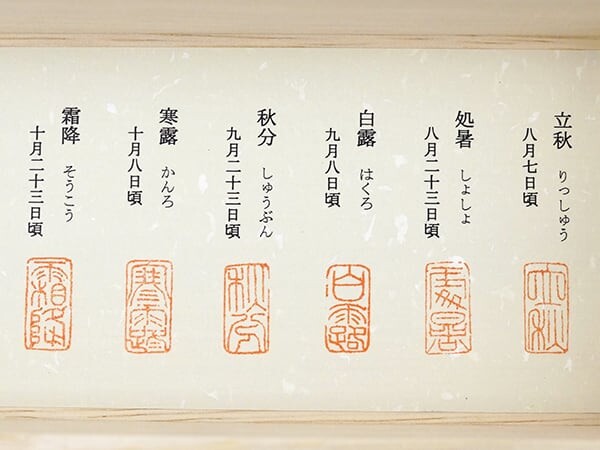 立秋 りっしゅう
八月七日頃
処暑 しょしょ
八月二十三日頃
白露 はくろ
九月八日頃
秋分 しゅうぶん
九月二十三日頃
寒露 かんろ
十月八日頃
霜降 そうこう
十月二十三日頃
立秋
処暑
白露
秋分
寒露
霜降